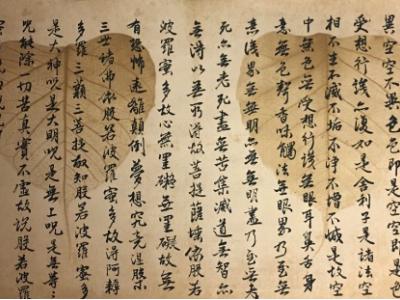 異空空不異色色即是空空即是色
受想行識亦復如是舍利子是諸法空
相不生不滅不垢不淨不增不減是故空
中無色無受想行識無眼耳鼻舌身
意無色聲香味觸法無眼界乃至無
意識界無無明亦無無明盡乃至無老
死亦無老死盡無苦集滅道無智亦
無得以無所得故菩提薩埵依般若
波羅蜜多故心無罣礙無罣礙故無
有恐怖遠離顛倒夢想究竟涅槃
三世諸佛依般若波羅蜜多故得阿耨
多羅三藐三菩提故知般若波羅蜜多
是大神呪是大明呪是無上呪是無等
呪能除一切苦真實不虛故說般若波羅